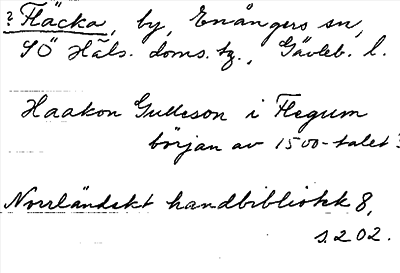 ? Fläcka, by, Enångers sn,
SÖ Häls. doms. tg., Gävleb. l.
Haakon Gulleson i Flegum
början av 1500-talet?
Norrländskt handbibliotek 8,
s. 202.